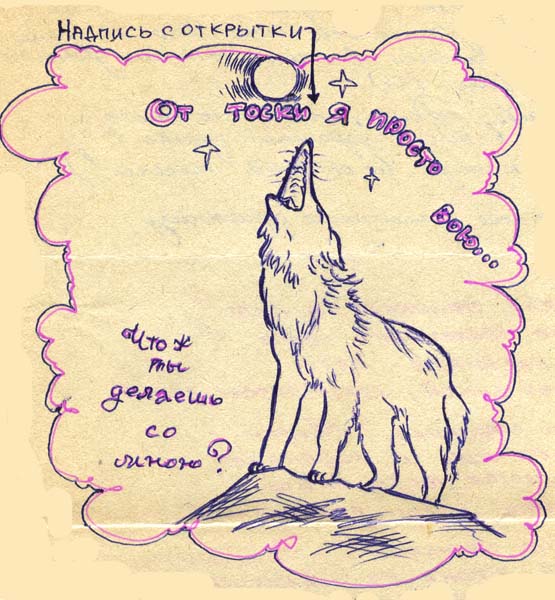 Надпись с открытки
От тоски я просто вою...
Что ж
ты
делаешь
со
мною?